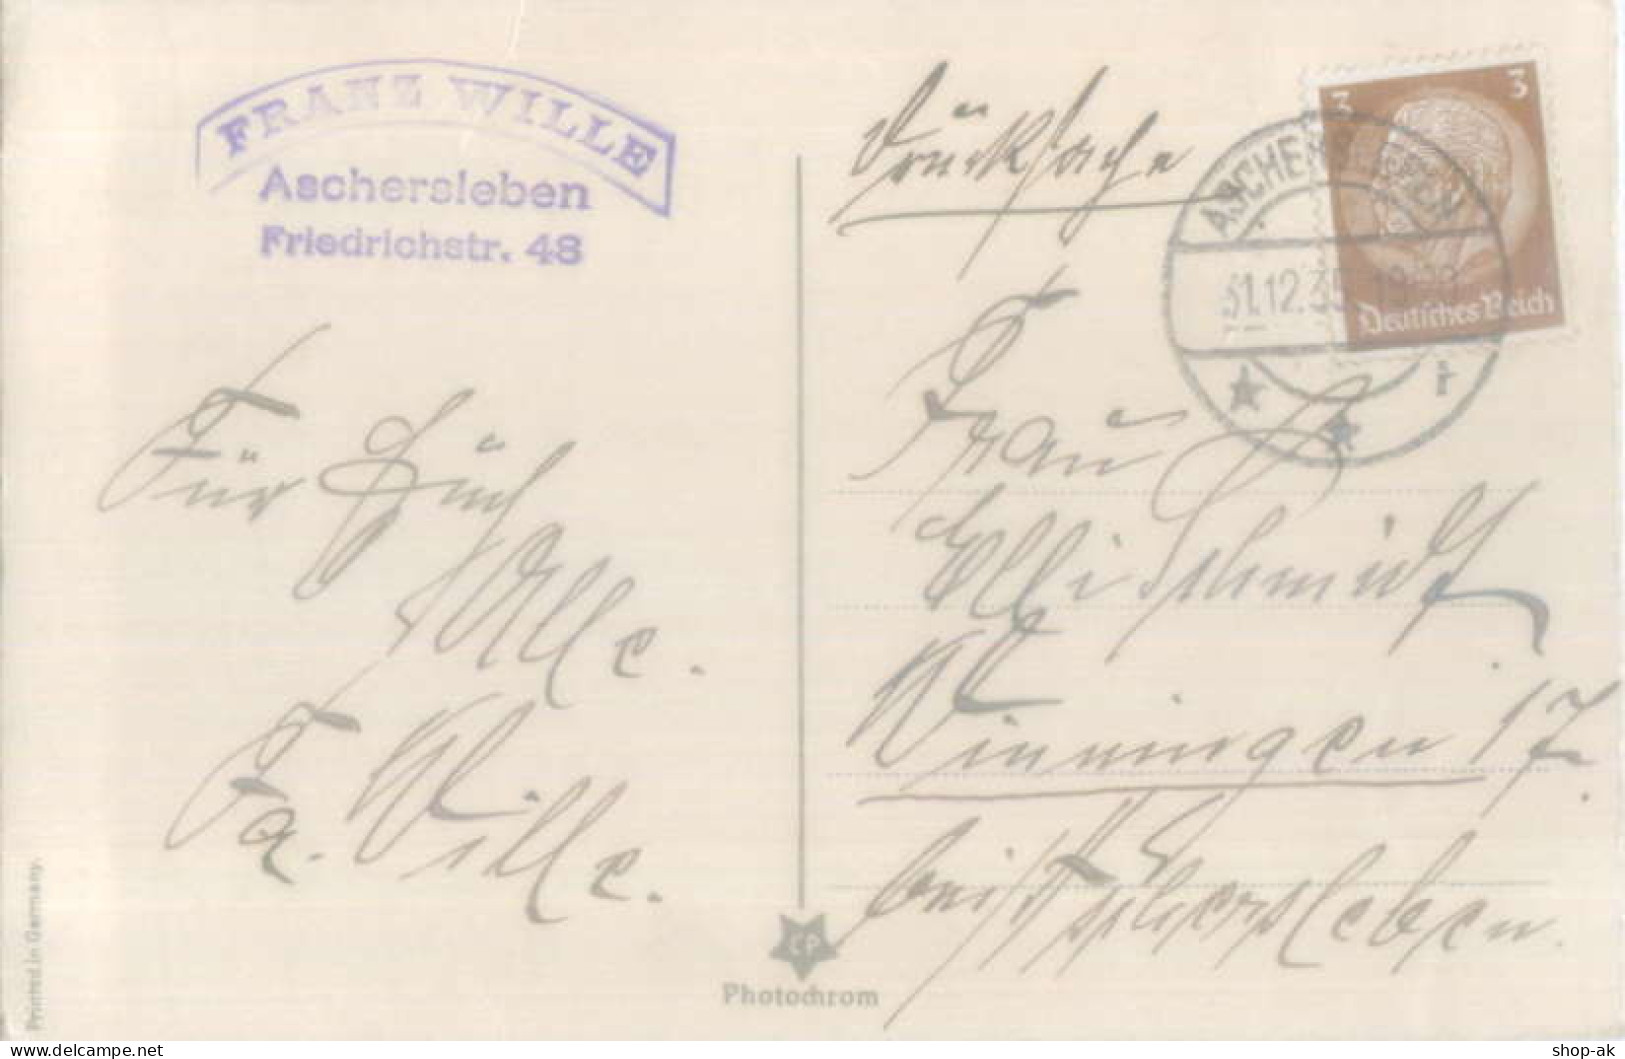 FRANZ WILLE
Aschersleben
Friedrichstr. 48
Für
Alle.
Fa. Wille.
Drucksache
3 3
Deutsches Reich
ASCHERSLEBEN
31.12.35
Frau
Elli Schmidt
Winningen 17.
bei Aschersleben.
CP
Photochrom
Printed in Germany.
shop-ak